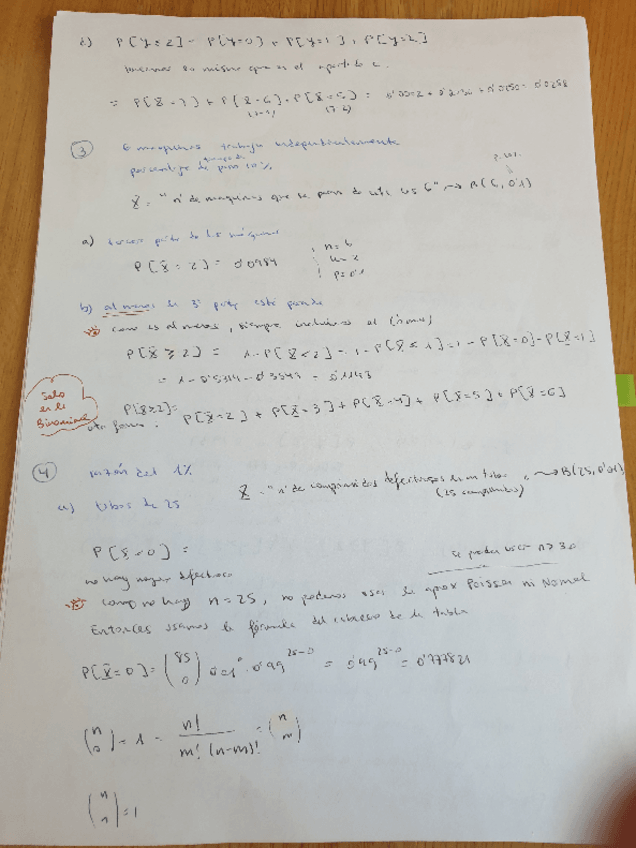 d) P[Y≤2] = P[Y=0] + P[Y=1] + P[Y=2]
lo mismo que en el apartado c.
= P[X=7] + P[X=6] + P[X=5] =
③ 6 maquinas trabaja independientemente
porcentaje de paro 10%
X = "nº de maquinas que se paran de las 6" ⟿ B(6, 0'1)
a) tercera parte de las máquinas
P[X=2] = 0'0984
n=6
p=0'1
b) al menos la 3ª parte esté parada
como es al menos, siempre incluimos el (número)
P[X≥2] = 1-P[X<2] = 1-P[X≤1] = 1-P[X=0]-P[X=1]
= 1-0'5314-0'3543 = 0'1143
Solo en la Binomial
P[X≥2]=
otra forma: P[X=2] + P[X=3] + P[X=4] + P[X=5] + P[X=6]
④ razón del 1%
X = "nº de comprimidos defectuosos en un tubo" ⟿ B(25, 0'01)
(25 comprimidos)
a) tubos de 25
P[X=0] =
no hay ningún defectuoso
se pueden usar n>30
como no hay n=25, no podemos usar la aprox Poisson ni Normal
Entonces usamos la fórmula del cabecero de la tabla
P[X=0] = (85 0) 0'01^0 · 0'99^25-0 = 0'99^25-0 = 0'777821
(n 0) = 1 = n! / m! (n-m)! = (n m)
(n n) = 1